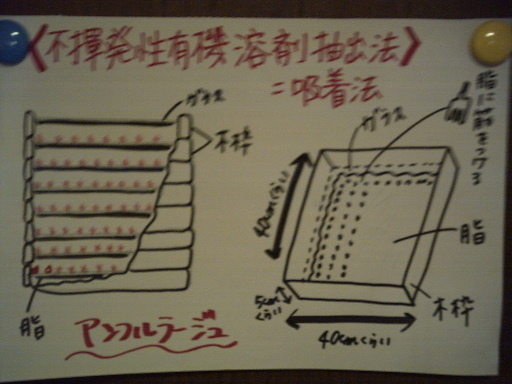 〈不揮発性有機溶剤抽出法〉
=吸着法
ガラス
木枠
脂
アンフルラージュ
脂に筋をつける
ガラス
40cmくらい
脂
木枠
5cm
くらい
40cmくらい